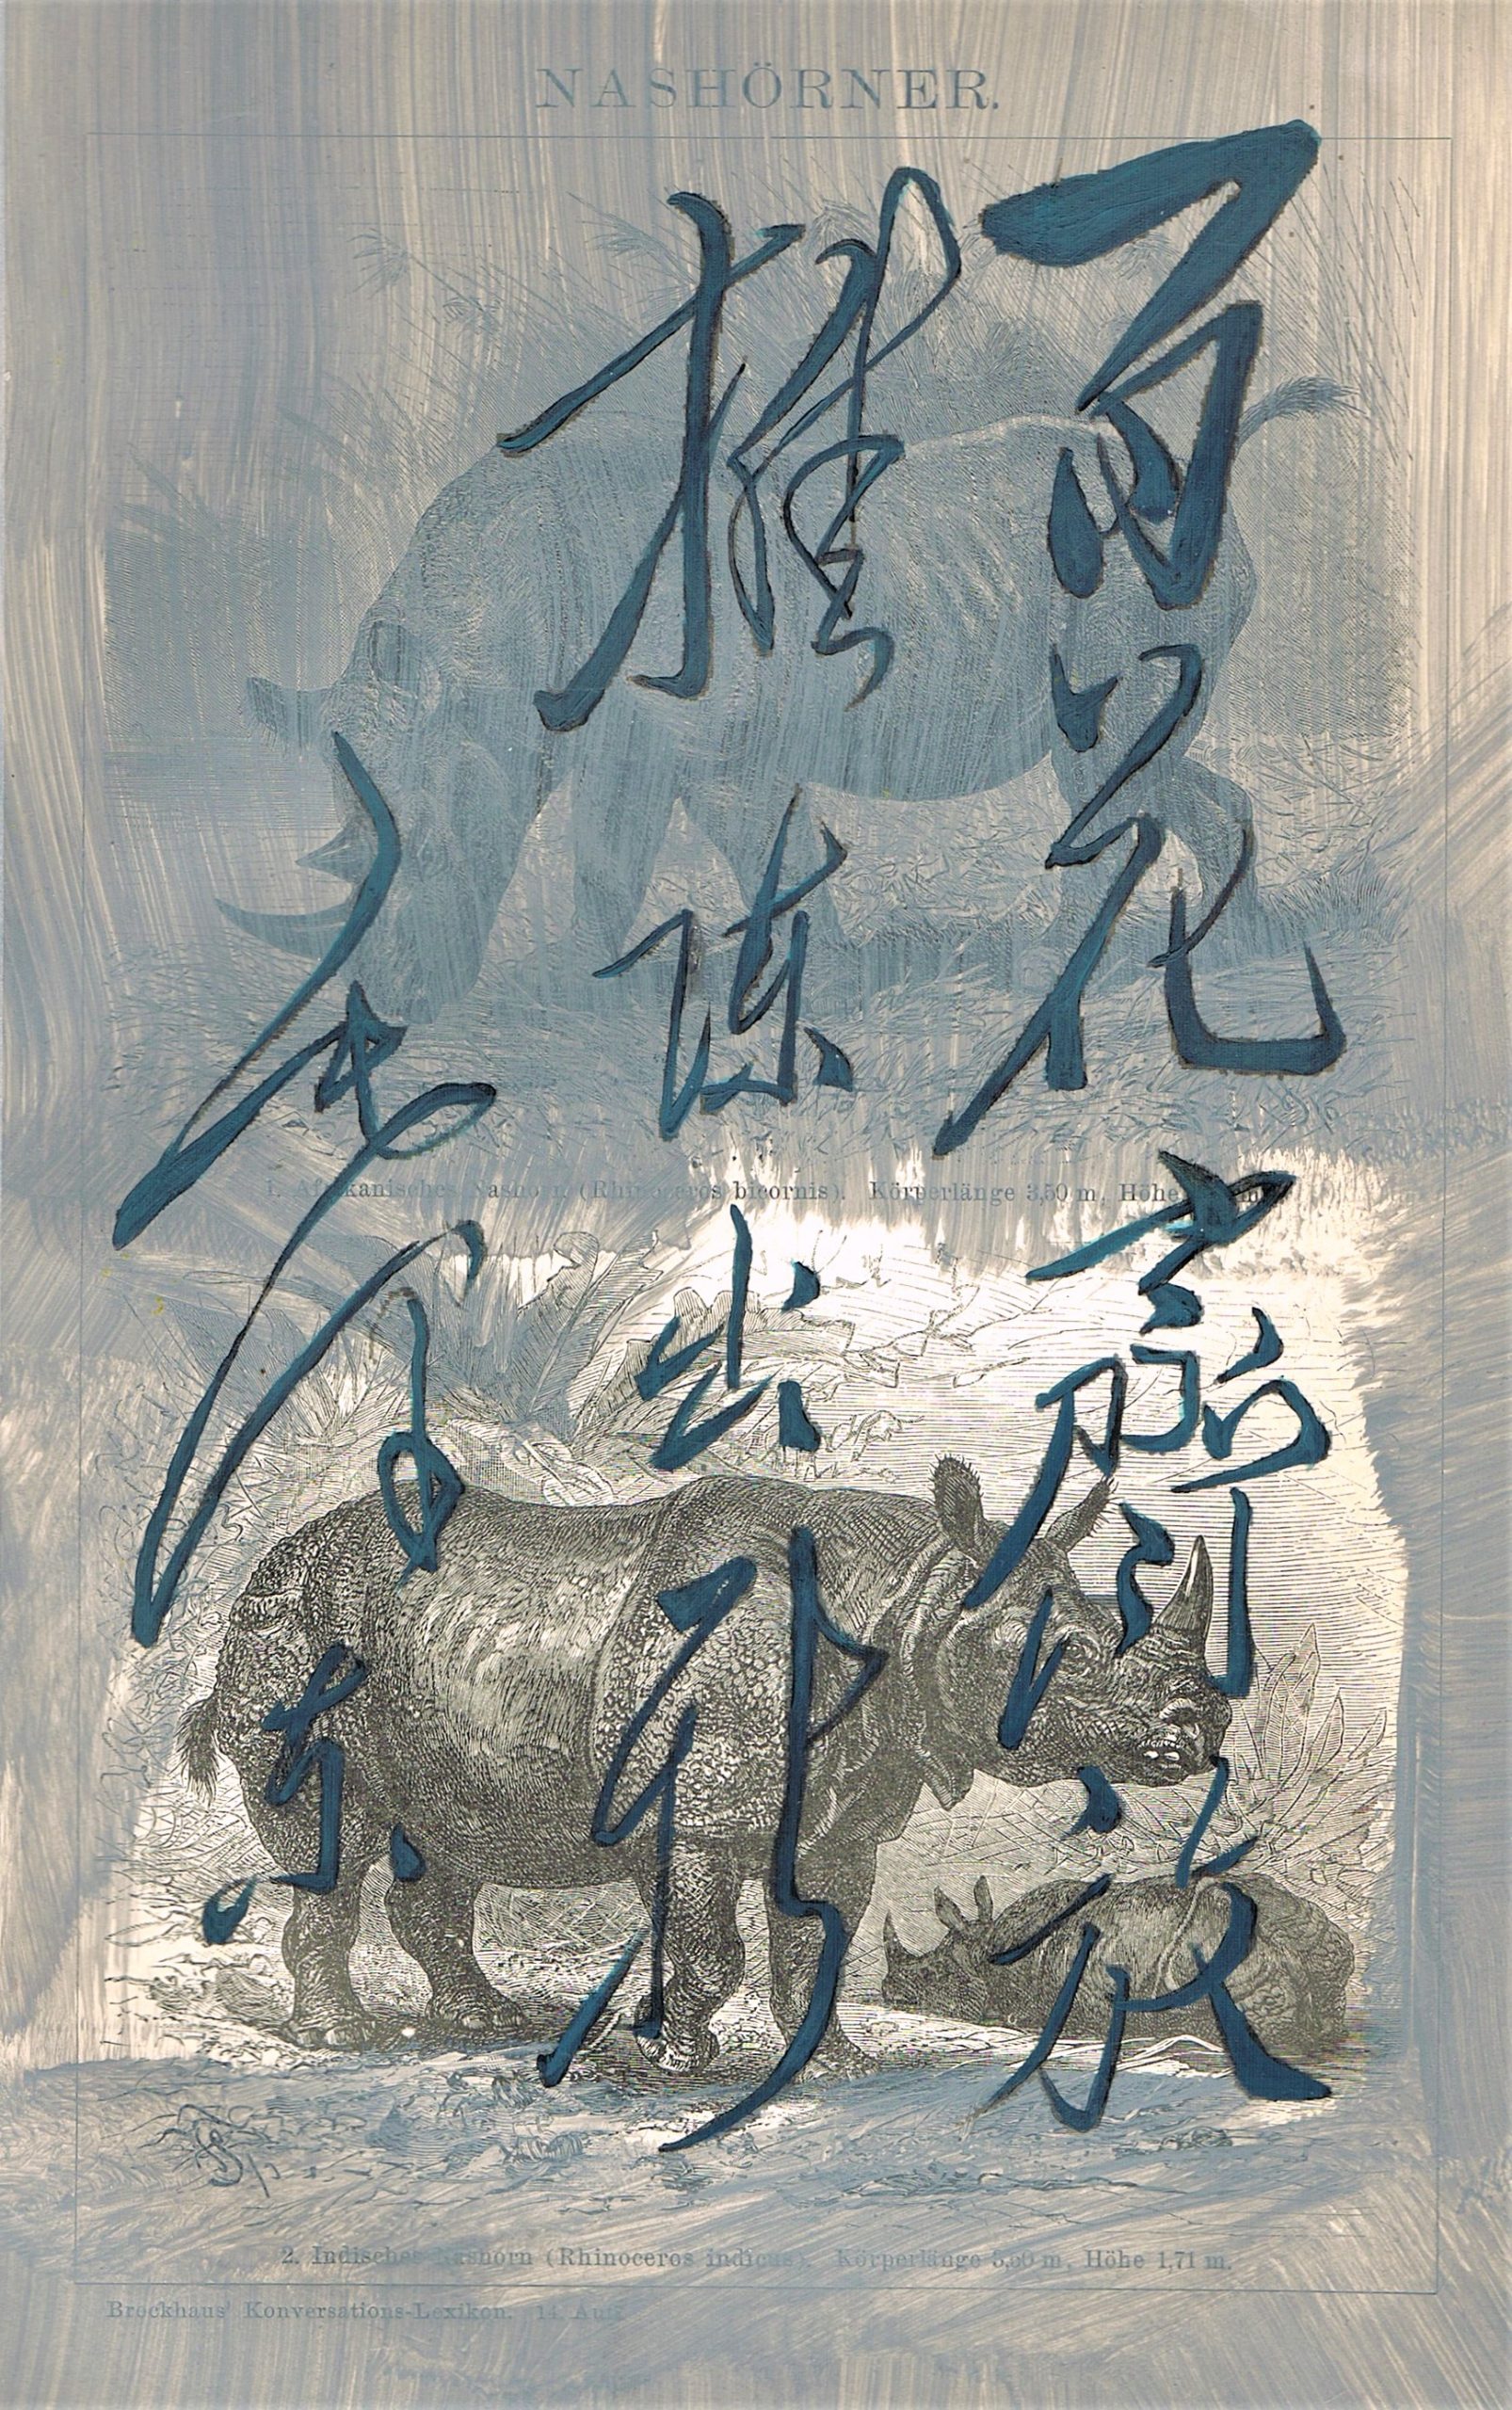 NASHÖRNER.
百花齊放
推陳出新
毛澤東
1. Afrikanisches Nashorn (Rhinoceros bicornis). Körperlänge 3,50 m, Höhe
2. Indisches Nashorn (Rhinoceros indicus). Körperlänge 3,60 m, Höhe 1,71 m.
Brockhaus' Konversations-Lexikon. 14. Aufl.